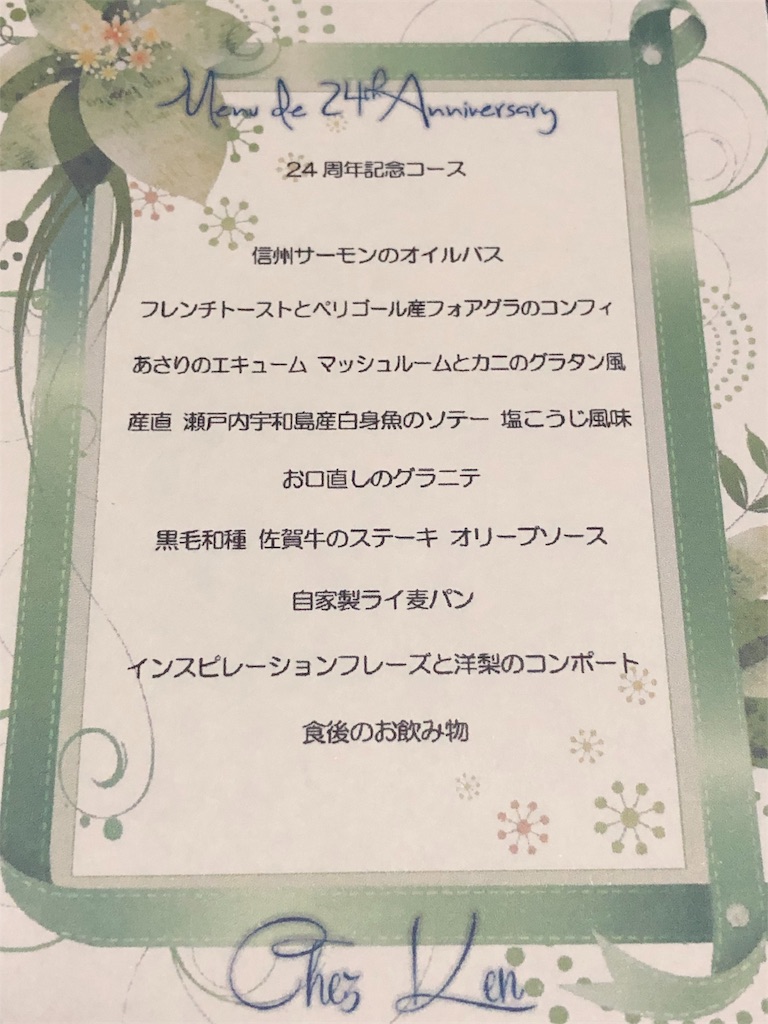 Menu de 24th Anniversary
24周年記念コース
信州サーモンのオイルバス
フレンチトーストとペリゴール産フォアグラのコンフィ
あさりのエキューム マッシュルームとカニのグラタン風
産直 瀬戸内宇和島産白身魚のソテー 塩こうじ風味
お口直しのグラニテ
黒毛和種 佐賀牛のステーキ オリーブソース
自家製ライ麦パン
インスピレーションフレーズと洋梨のコンポート
食後のお飲み物
Chez Ken